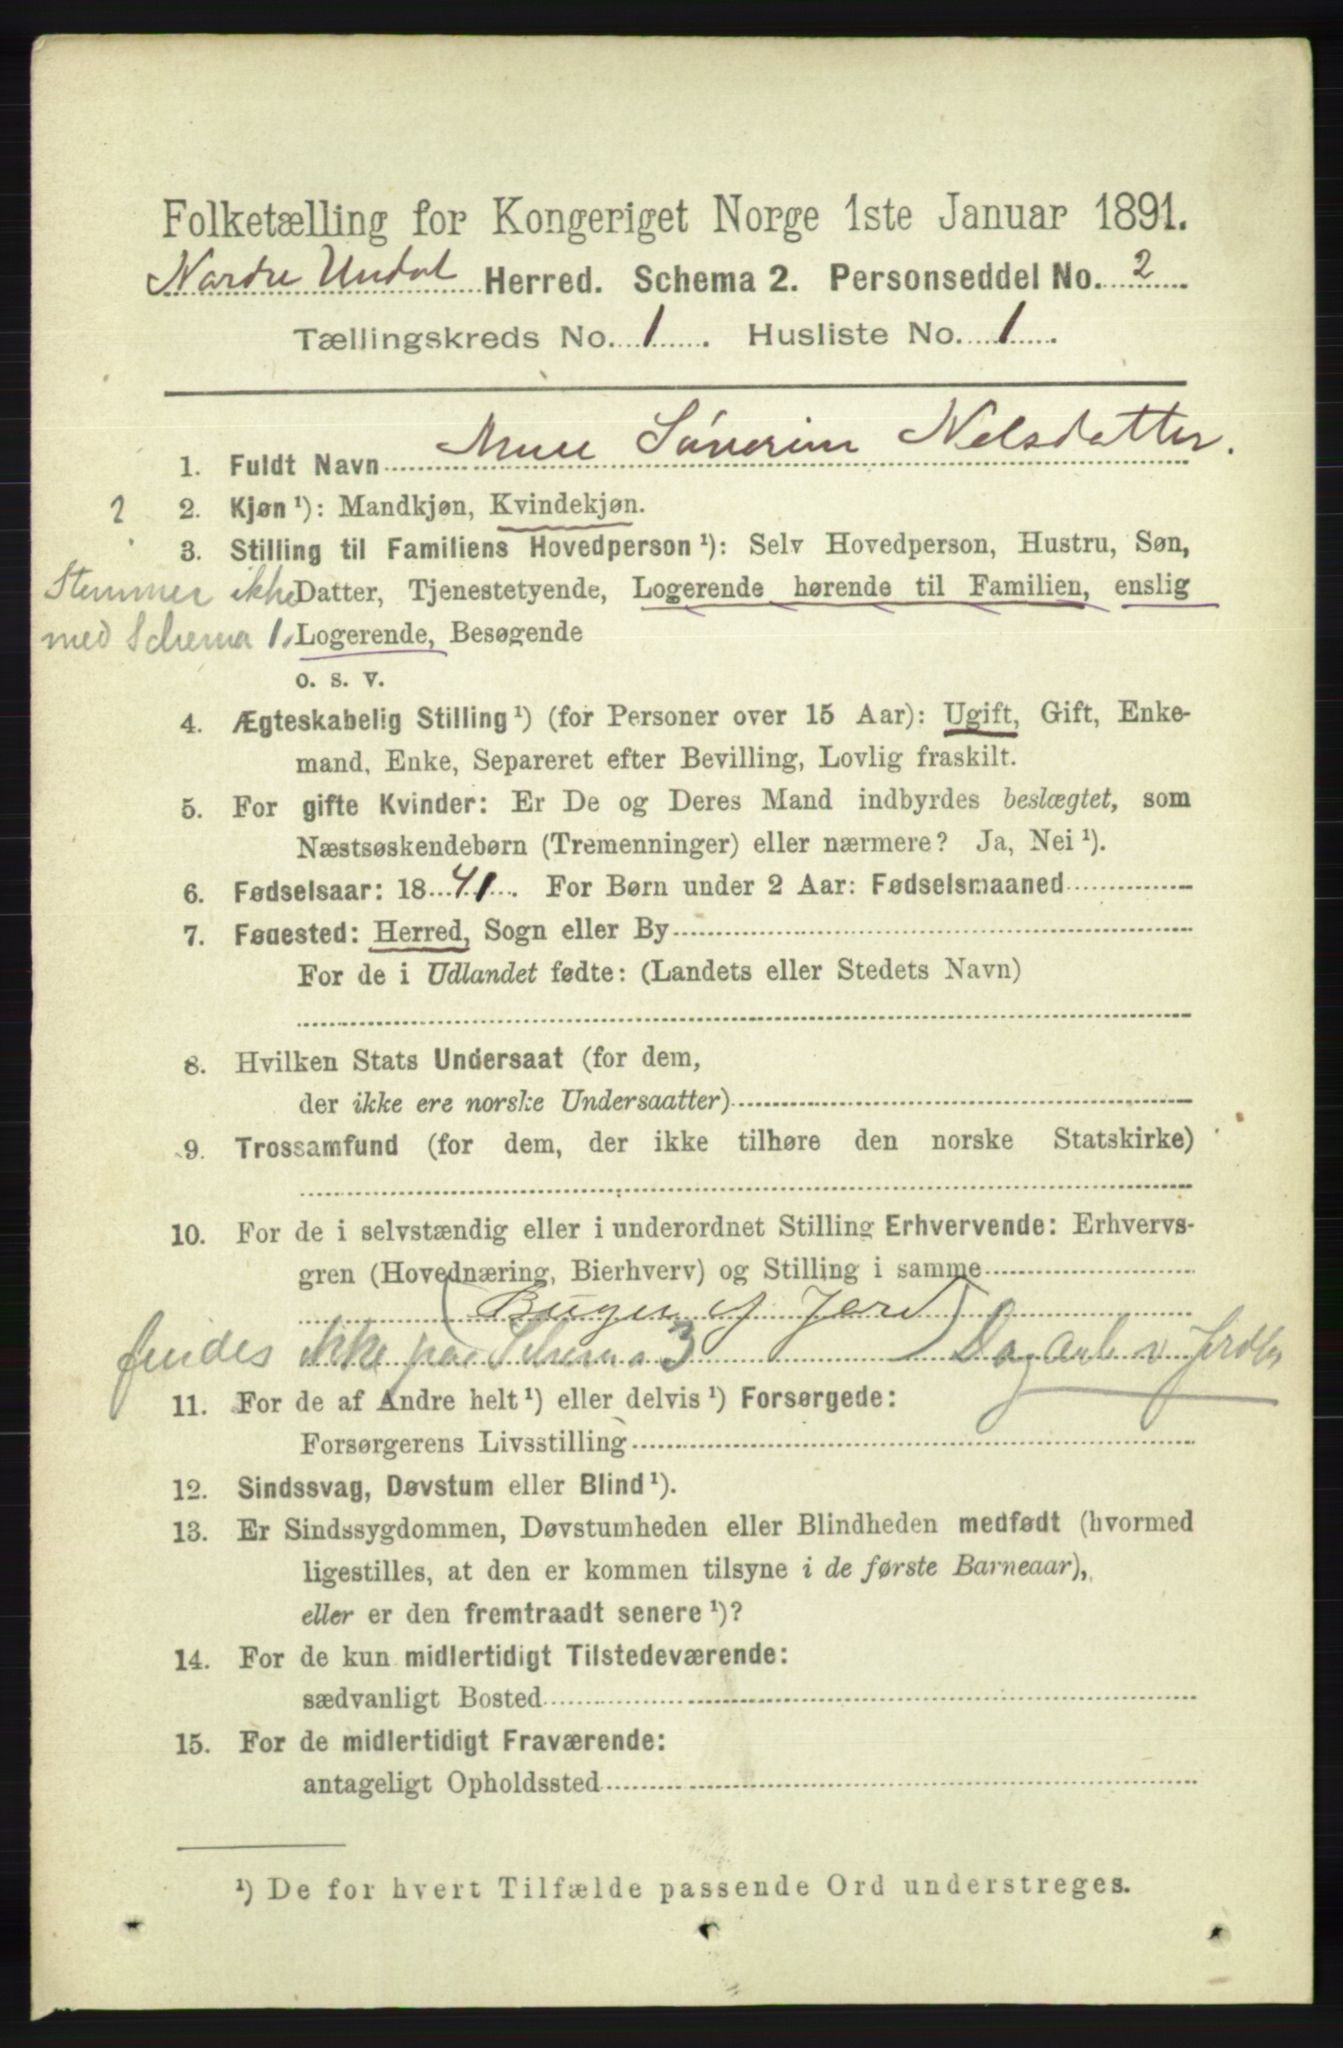 Folketælling for Kongeriget Norge 1ste Januar 1891.
Nordre Undal Herred. Schema 2. Personseddel No. 2
Tællingskreds No. 1. Husliste No. 1.
1. Fuldt Navn Severine Nelsdatter.
? 2. Kjøn ¹): Mandkjøn, Kvindekjøn.
3. Stilling til Familiens Hovedperson ¹): Selv Hovedperson, Hustru, Søn,
Stemmer ikke Datter, Tjenestetyende, Logerende hørende til Familien, enslig
med Schema 1. Logerende, Besøgende
o. s. v.
4. Ægteskabelig Stilling ¹) (for Personer over 15 Aar): Ugift, Gift, Enke-
mand, Enke, Separeret efter Bevilling, Lovlig fraskilt.
5. For gifte Kvinder: Er De og Deres Mand indbyrdes beslægtet, som
Næstsøskendebørn (Tremenninger) eller nærmere? Ja, Nei ¹).
6. Fødselsaar: 1841. For Børn under 2 Aar: Fødselsmaaned
7. Fødested: Herred, Sogn eller By
For de i Udlandet fødte: (Landets eller Stedets Navn)
8. Hvilken Stats Undersaat (for dem,
der ikke ere norske Undersaatter)
9. Trossamfund (for dem, der ikke tilhøre den norske Statskirke)
10. For de i selvstændig eller i underordnet Stilling Erhvervende: Erhvervs-
gren (Hovednæring, Bierhverv) og Stilling i samme
(Bruger af Jord)
findes ikke paa Schema 3 Dagarb v Jordbr
11. For de af Andre helt ¹) eller delvis ¹) Forsørgede:
Forsørgerens Livsstilling
12. Sindssvag, Døvstum eller Blind ¹).
13. Er Sindssygdommen, Døvstumheden eller Blindheden medfødt (hvormed
ligestilles, at den er kommen tilsyne i de første Barneaar),
eller er den fremtraadt senere ¹)?
14. For de kun midlertidigt Tilstedeværende:
sædvanligt Bosted
15. For de midlertidigt Fraværende:
antageligt Opholdssted
¹) De for hvert Tilfælde passende Ord understreges.